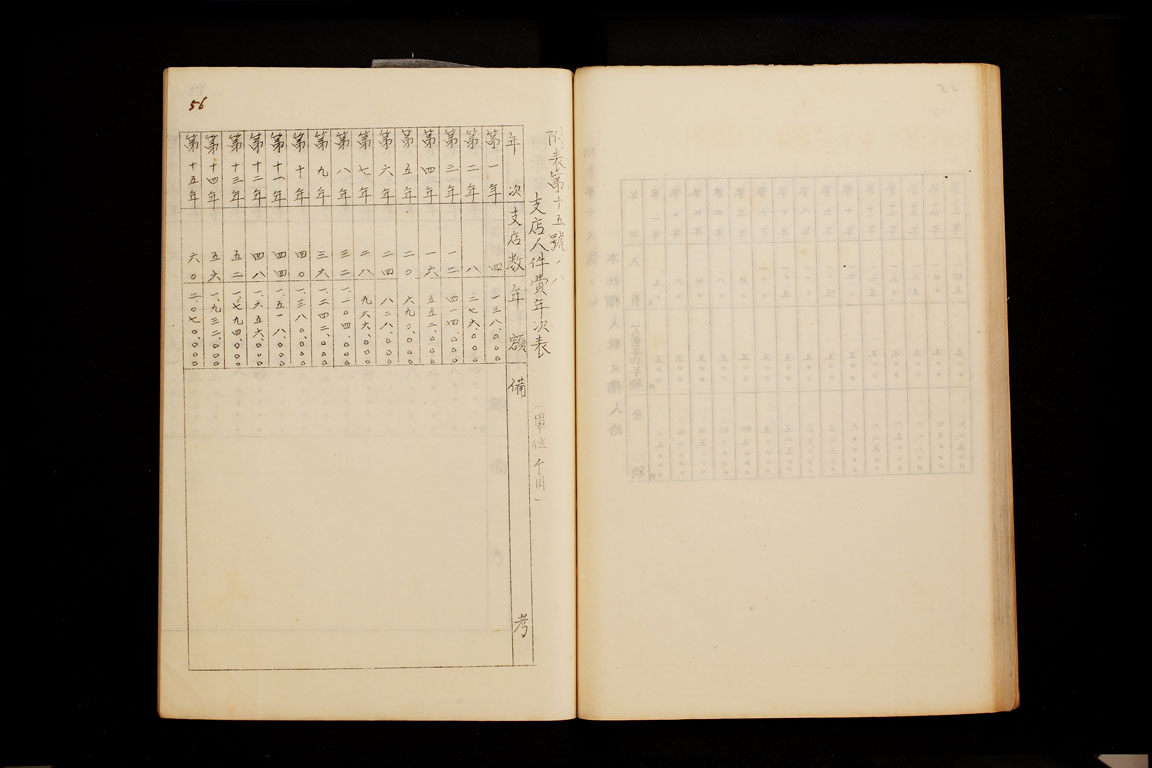 56
附表第十五號ノ八
支店人件費年次表
(單位 千円)
年次 支店数 年額 備考
第一年 四 一三八、〇〇〇
第二年 八 二七六、〇〇〇
第三年 一二 四一四、〇〇〇
第四年 一六 五五二、〇〇〇
第五年 二〇 六九〇、〇〇〇
第六年 二四 八二八、〇〇〇
第七年 二八 九六六、〇〇〇
第八年 三二 一、一〇四、〇〇〇
第九年 三六 一、二四二、〇〇〇
第十年 四〇 一、三八〇、〇〇〇
第十一年 四四 一、五一八、〇〇〇
第十二年 四八 一、六五六、〇〇〇
第十三年 五二 一、七九四、〇〇〇
第十四年 五六 一、九三二、〇〇〇
第十五年 六〇 二、〇七〇、〇〇〇